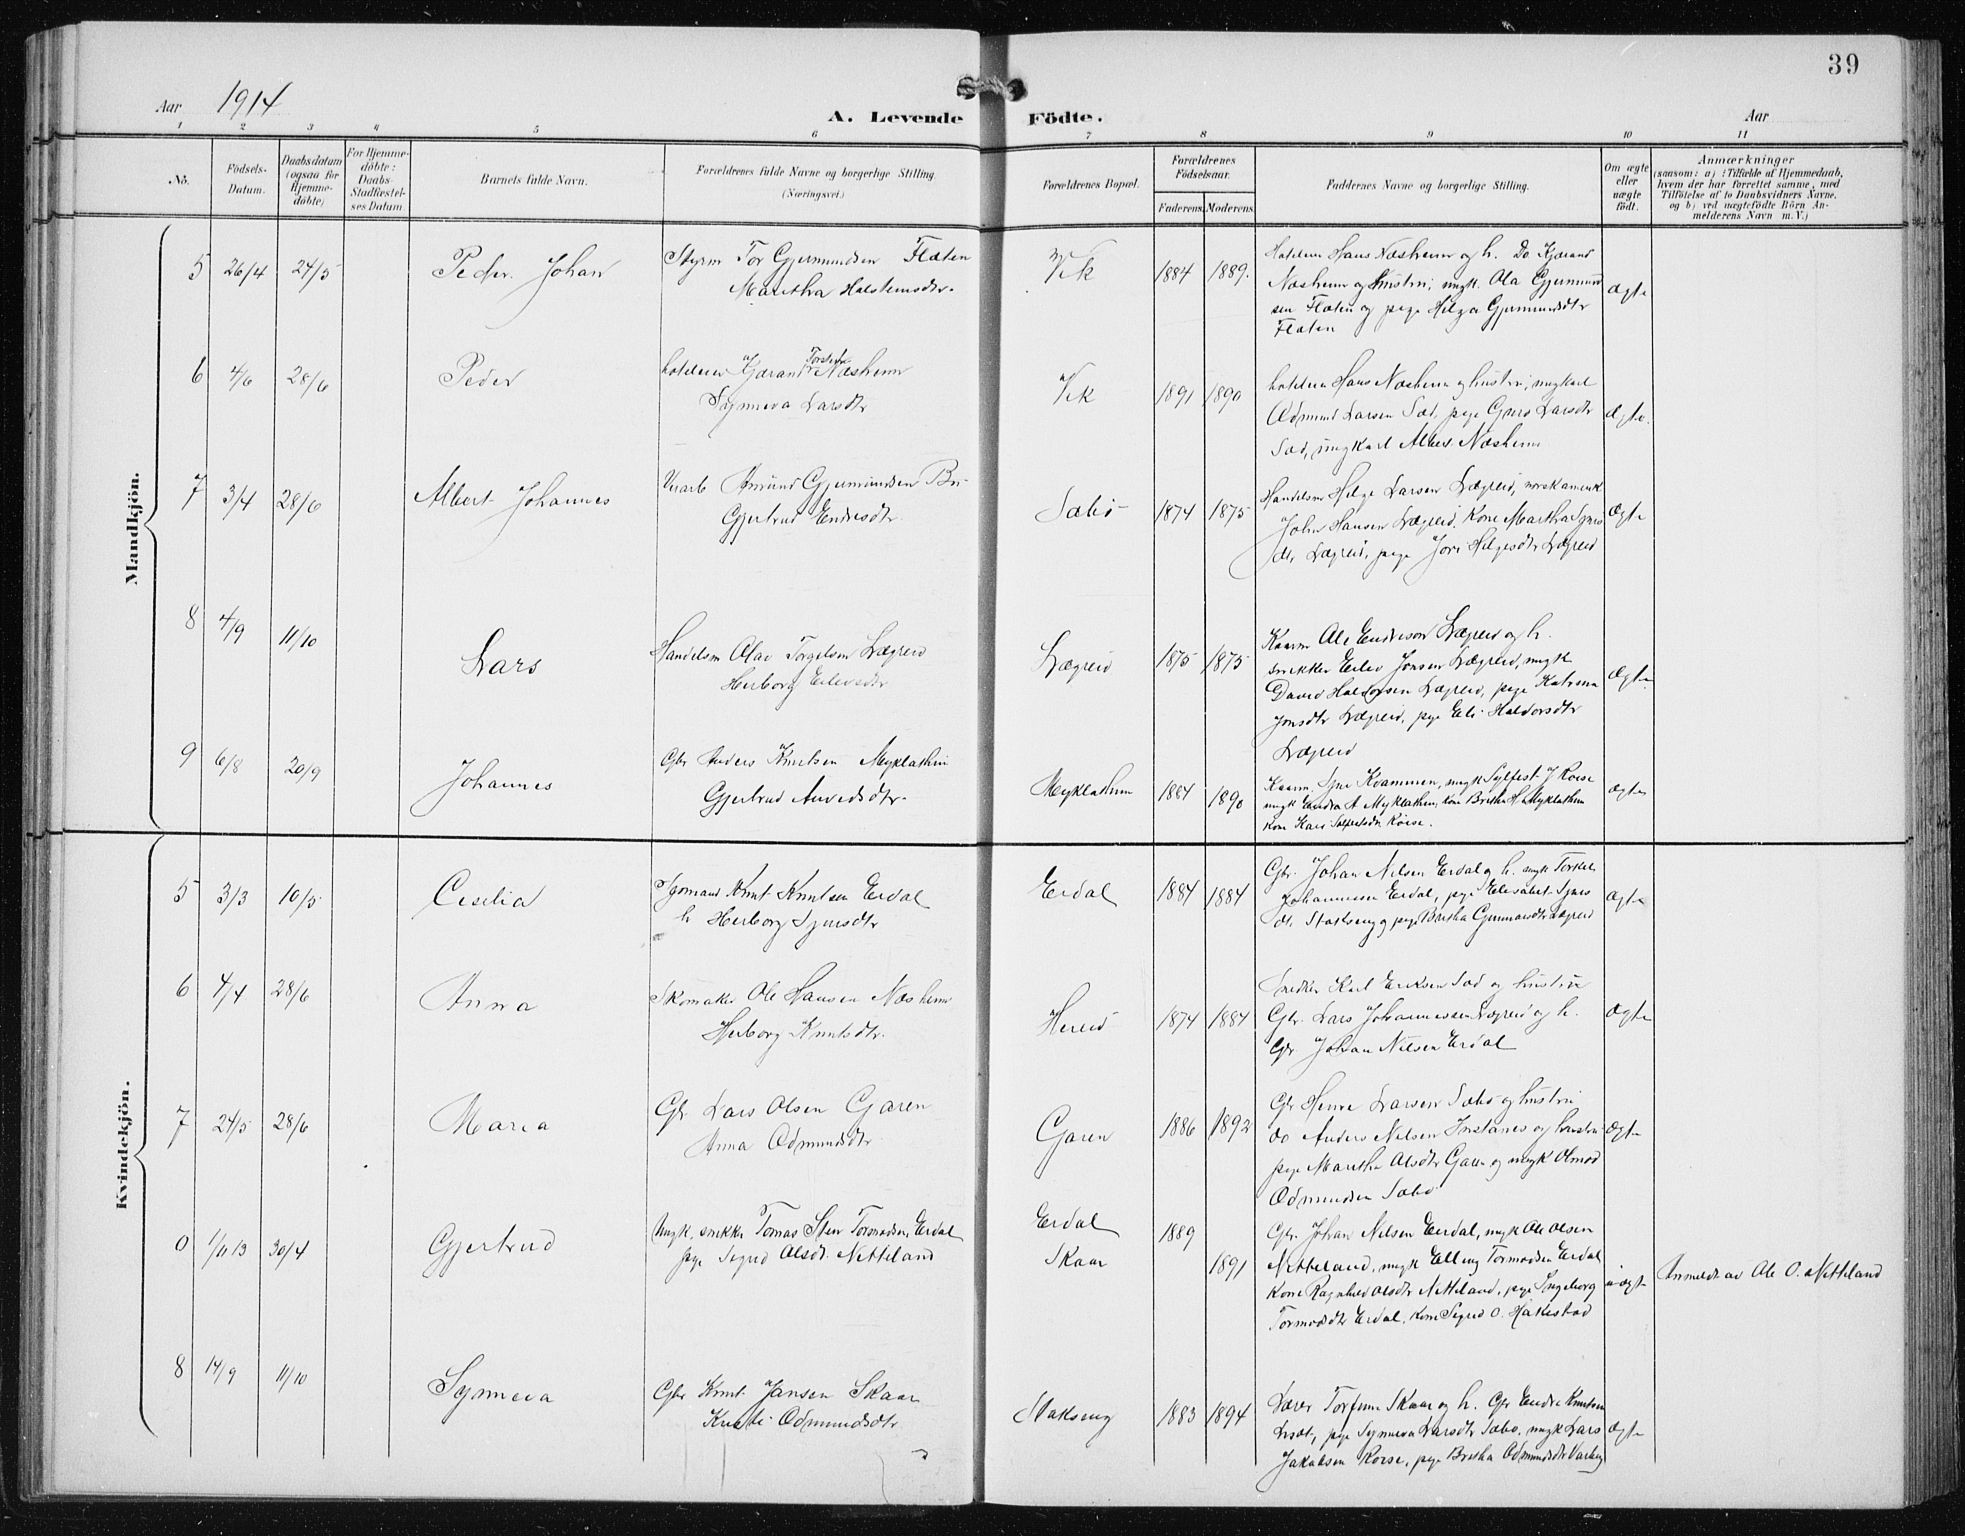 39
Aar 1914
A. Levende Födte.
Aar
1 2 3 4 5 6 7 8 9 10 11
No.
Födsels-
Datum.
Daabsdatum
(ogsaa for
Hjemme-
döbte)
For Hjemme-
döbte:
Daabs-
Stadfæstel-
ses Datum.
Barnets fulde Navn.
Forældrenes fulde Navne og borgerlige Stilling
(Næringsvei)
Forældrenes Bopæl.
Forældrenes
Födselsaar.
Faderens. Moderens.
Faddernes Navne og borgerlige Stilling.
Om ægte
eller
uægte
födt.
Anmærkninger
(saasom: a) i Tilfælde af Hjemmedaab,
hvem der har forrettet samme, med
Tilföielse af to Daabsvidners Navne,
og b) ved uægtefödte Börn An-
melderens Navn m. V.)
Mandkjön.
5 26/4 24/5 Peder Johan
Styrm Tor Gjermundsen Flæten
Martha Halsteinsdtr.
Vik 1884 1889.
Hans Næsheim og h. Do Kjærand
Næsheim og hustru, ungk. Ola Gjermund
sen Flæten og pige Helga Gjermundsdtr
Flæten
Ægte
6 4/6 28/6 Peder
Kjærand Torstein Næsheim
Synneva Larsdtr
Vik 1891 1890
Hans Næsheim og hustru, ungkarl
Odmund Larsen Sæd, pige Guro Larsdtr
Sæd, ungkarl Næsheim
Ægte.
7 3/4 28/6 Albert Johannes
Amund Gjermundsen Bu-
Gjertrud Endresdtr.
Sæbø 1874 1875
Handelsm Helge Larsen Lægreid, norskamerik
John Hansen Lægreid, Kone Martha Sjurs
dtr Lægreid, pige Jori Helgesdtr Lægreid
Ægte
8 4/9 11/10 Lars
Handelsm Olav Torgelsen Lægreid
Herborg Eilevsdtr
Lægreid 1875 1875
Kaarm Ole Endreson Lægreid og h.
snekker Eilev Jonsen Lægreid, ungk
David Haldorsen Lægreid, pige Katrina
Jonsdtr Lægreid, pige Eli Haldorsdtr
Lægreid
Ægte
9 6/8 20/9 Johannes
Gbr Anders Knutsen Myklathun
Gjertrud Amundsdtr.
Myklathun 1884 1890
Kaarm. Sjur Kvammen, ungk Sylfest J Røise
ungk Endre A Myklathun, Kone Britha H Myklathun
Kone Kari Sylfestsdtr Røise.
Ægte
Kvindekjön.
5 3/3 10/5 Cecilia
Sjømand Knut Knutsen Erdal
h Herborg Sjursdtr
Erdal 1884 1884
Gbr. Johan Nilsen Erdal og h. ungk Torkel
Johannessen Erdal, pige Elisabet Sjurs
dtr Stokseng og pige Britha Gunnarsdtr Lægreid
Ægte
6 4/4 28/6 Anna
Skomaker Ole Hansen Næsheim
Herborg Knutsdtr.
Hereid 1874 1884
Snedker Karl Eriksen Sæd og hustru
Gbr. Lars Johannessen Lægreid og h.
Gbr Johan Nilsen Erdal
Ægte
7 24/5 28/6 Maria
Gbr Lars Olsen Garen
Anna Odmundsdtr
Garen 1886 1892
Gbr Larsen Sæbø og hustru
do Anders Nilsen Instanes og hustru
pige Martha Olsdtr Garen og ungk Olmod
Odmundsen Sæbø
Ægte
0 1/11 13 30/4 Gjertrud
Ungk. snikker Tomas Sten Tormodsen Erdal
pige Sigrid Olsdtr Nettiland
Erdal
Skaar
1889
1891
Gbr. Johan Nilsen Erdal, ungk Ole Olsen
Nettiland, ungk Elling Tormodsen Erdal
Kone Ragnhild Olsdtr Nettiland, pige Ingeborg
Tormodsdtr Erdal, Kone Sigrid O. Hakestad
uægte
Anmeldt av Ole O. Nettiland
8 14/9 11/10 Synneva
Gbr Knut Jansen Skaar
Kristi Odmundsdtr
Stokseng 1883 1894
Lærer Torfinn Skaar og h. Gbr Endre Knutsen
pige Synneva Larsdtr Sæbø, ungk Lars
Jakobsen Røise, pige Britha Odmundsdtr Varberg
Ægte